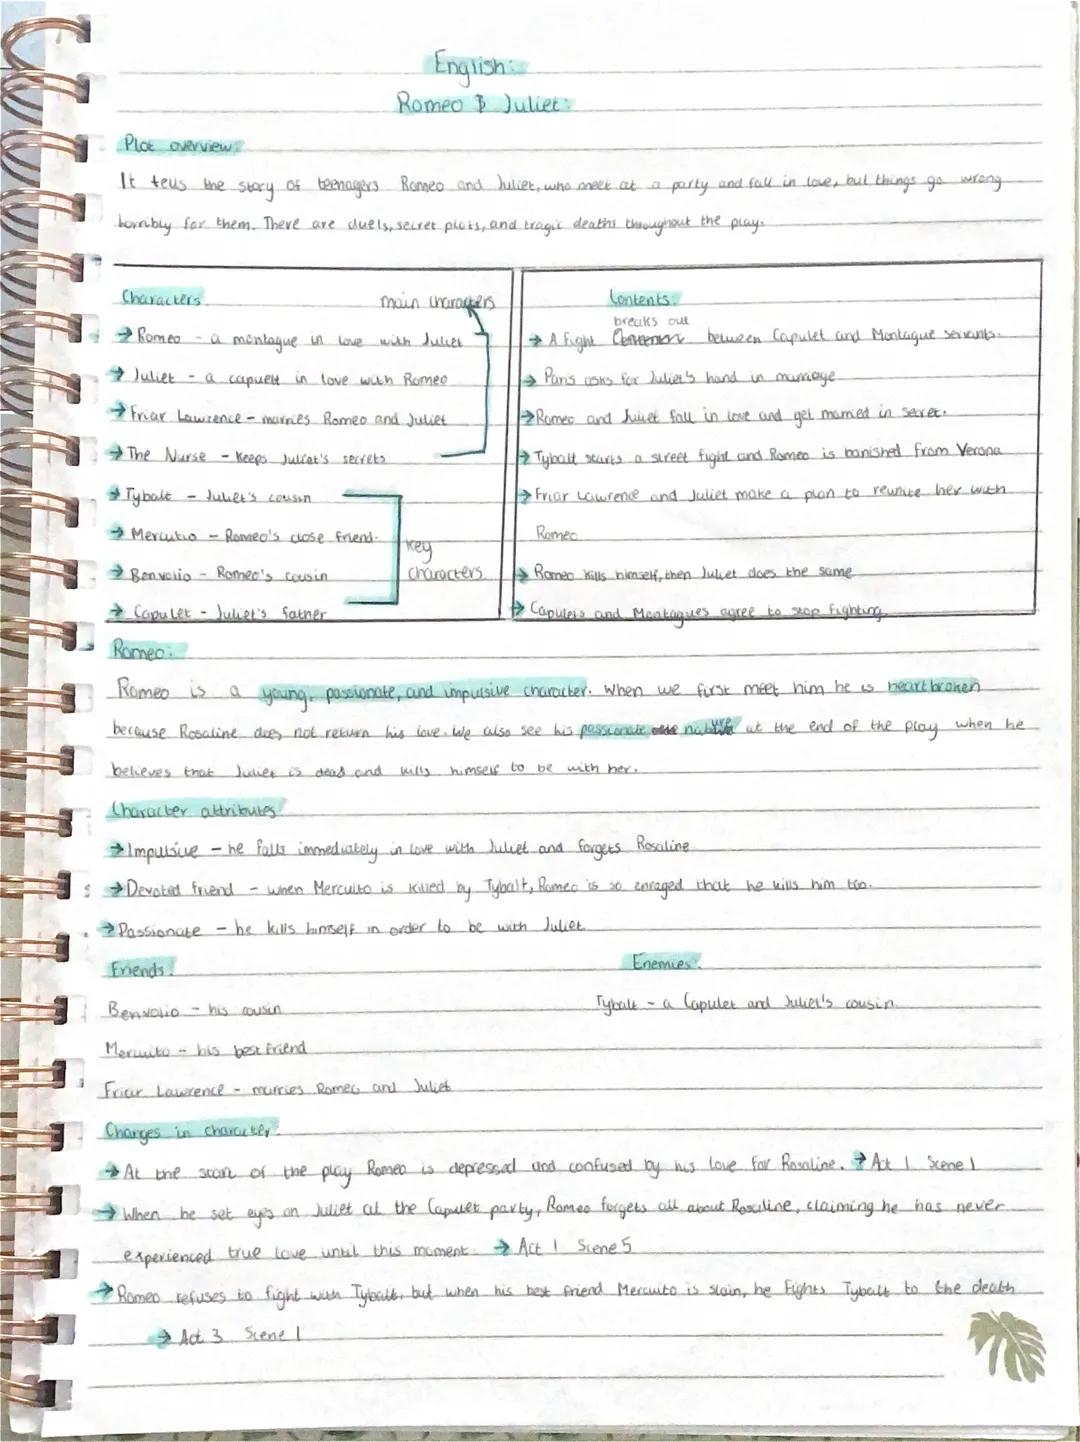 English:
Romeo & Juliet:
Plot overview:
It tells the story of teenagers Romeo and Juliet, who meet at a party and fall in love, but things go wrong
horribly for them. There are duels, secret plots, and tragic deaths throughout the play.
Characters:
main characters
→ Romeo - a montague in love with Juliet
→ Juliet - a capuelt in love with Romeo
→ Friar Lawrence - marries Romeo and Juliet
→ The Nurse - keeps Juliet's secrets
→ Tybalt - Juliet's cousin
→ Mercutio - Romeo's close friend.
→ Benvolio - Romeo's cousin
→ Capulet - Juliet's father
key
characters
Contents:
breaks out
→ A fight between Capulet and Montague servants.
→ Paris asks for Juliet's hand in marriage
→ Romeo and Juliet fall in love and get married in secret.
→ Tybalt starts a street fight and Romeo is banished from Verona
→ Friar Lawrence and Juliet make a plan to reunite her with
Romeo
→ Romeo kills himself, then Juliet does the same
→ Capulets and Montagues agree to stop fighting.
Romeo:
Romeo is a young, passionate, and impulsive character. When we first meet him he is heartbroken
because Rosaline does not return his love. We also see his passionate native at the end of the play when he
believes that Juliet is dead and kills himself to be with her.
Character attributes
→ Impulsive - he falls immediately in love with Juliet and forgets Rosaline
→ Devoted friend - when Mercuito is killed by Tybalt, Romeo is so enraged that he kills him too.
→ Passionate - he kills himself in order to be with Juliet
Friends:
Benvolio - his cousin
Mercuito - his best friend
Friar Lawrence - marries Romeo and Juliet
Enemies:
Tybalt - a Capulet and Juliet's cousin.
Changes in character:
→ At the start of the play Romeo is depressed and confused by his love for Rosaline. → Act 1 Scene 1
→ When he set eyes on Juliet at the Capulet party, Romeo forgets all about Rosaline, claiming he has never
experienced true love until this moment. → Act 1 Scene 5
→ Romeo refuses to fight with Tybalt, but when his best friend Mercuito is slain, he fights Tybalt to the death
→ Act 3 Scene 1